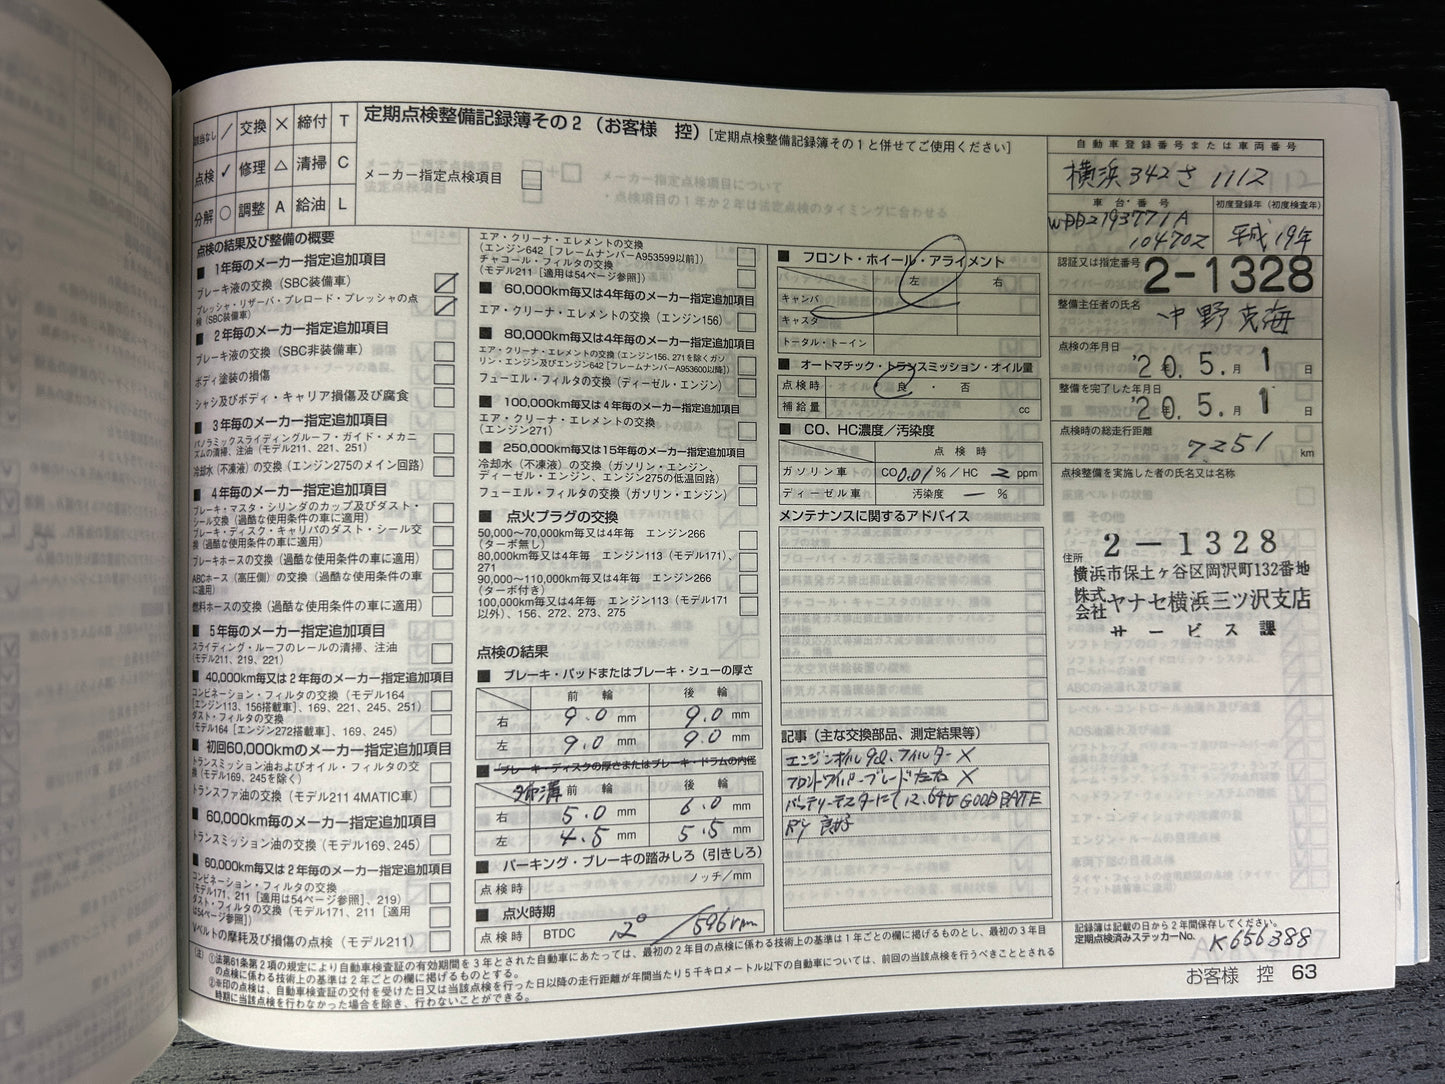 該当なし / 交換 × 締付 T
点検 ✓ 修理 △ 清掃 C
分解 ○ 調整 A 給油 L
定期点検整備記録簿その2（お客様　控）［定期点検整備記録簿その1と併せてご使用ください］
メーカー指定点検項目
点検の結果及び整備の概要
■ 1年毎のメーカー指定追加項目
ブレーキ液の交換（SBC装備車）
プレッシャ・リザーバ・プレロード・プレッシャの点検（SBC装備車）
■ 2年毎のメーカー指定追加項目
ブレーキ液の交換（SBC非装備車）
ボディ塗装の損傷
シャシ及びボディ・キャリア損傷及び腐食
■ 3年毎のメーカー指定追加項目
パノラミックスライディングルーフ・ガイド・メカニズムの清掃、注油（モデル211、221、251）
冷却水（不凍液）の交換（エンジン275のメイン回路）
■ 4年毎のメーカー指定追加項目
ブレーキ・マスタ・シリンダのカップ及びダスト・シール交換（過酷な使用条件の車に適用）
ブレーキ・ディスク・キャリパのダスト・シール交換（過酷な使用条件の車に適用）
ブレーキホースの交換（過酷な使用条件の車に適用）
ABCホース（高圧側）の交換（過酷な使用条件の車に適用）
燃料ホースの交換（過酷な使用条件の車に適用）
■ 5年毎のメーカー指定追加項目
スライディング・ルーフのレールの清掃、注油（モデル211、219、221）
■ 40,000km毎又は2年毎のメーカー指定追加項目
コンビネーション・フィルタの交換（モデル164［エンジン113、156搭載車］、169、221、245、251）
ダスト・フィルタの交換（モデル164［エンジン272搭載車］、169、245）
■ 初回60,000kmのメーカー指定追加項目
トランスミッション油およびオイル・フィルタの交換（モデル169、245を除く）
トランスファ油の交換（モデル211 4MATIC車）
■ 60,000km毎のメーカー指定追加項目
トランスミッション油の交換（モデル169、245）
■ 60,000km毎又は2年毎のメーカー指定追加項目
コンビネーション・フィルタの交換（モデル171、211［適用は54ページ参照］、219）
ダスト・フィルタの交換（モデル171、211［適用は54ページ参照］）
Vベルトの摩耗及び損傷の点検（モデル211）
エア・クリーナ・エレメントの交換（エンジン642［フレームナンバーA953599以前］）
チャコール・フィルタの交換（モデル211［適用は54ページ参照］）
■ 60,000km毎又は4年毎のメーカー指定追加項目
エア・クリーナ・エレメントの交換（エンジン156）
■ 80,000km毎又は4年毎のメーカー指定追加項目
エア・クリーナ・エレメントの交換（エンジン156、271を除くガソリン・エンジン及びエンジン642［フレームナンバーA953600以降］）
フューエル・フィルタの交換（ディーゼル・エンジン）
■ 100,000km毎又は4年毎のメーカー指定追加項目
エア・クリーナ・エレメントの交換（エンジン271）
■ 250,000km毎又は15年毎のメーカー指定追加項目
冷却水（不凍液）の交換（ガソリン・エンジン、ディーゼル・エンジン、エンジン275の低温回路）
フューエル・フィルタの交換（ガソリン・エンジン）
■ 点火プラグの交換
50,000～70,000km毎又は4年毎　エンジン266（ターボ無し）
80,000km毎又は4年毎　エンジン113（モデル171）、271
90,000～110,000km毎又は4年毎　エンジン266（ターボ付き）
100,000km毎又は4年毎　エンジン113（モデル171以外）、156、272、273、275
点検の結果
■ ブレーキ・パッドまたはブレーキ・シューの厚さ
前　輪　後　輪
右 9.0 mm 9.0 mm
左 9.0 mm 9.0 mm
■ ブレーキ・ディスクの厚さまたはブレーキ・ドラムの内径
タイヤ溝 前　輪　後　輪
右 5.0 mm 6.0 mm
左 4.5 mm 5.5 mm
■ パーキング・ブレーキの踏みしろ（引きしろ）
点検時 ノッチ/mm
■ 点火時期
点検時 BTDC 12° / 596rpm
■ フロント・ホイール・アライメント
左　右
キャンバ
キャスタ
トータル・トーイン
■ オートマチック・トランスミッション・オイル量
点検時 良・否
補給量 cc
■ CO、HC濃度／汚染度
点検時
ガソリン車 CO 0.01 %／HC 2 ppm
ディーゼル車 汚染度 — %
メンテナンスに関するアドバイス
記事（主な交換部品、測定結果等）
エンジンオイル 9.0L フィルター ×
フロントワイパーブレード左右 ×
バッテリーテスターにて 12.64V GOOD BATE
RY 良好
自動車登録番号または車両番号
横浜 342 さ 1112
車台番号　初度登録年（初度検査年）
WDD2193771A
104702 平成19年
認証又は指定番号
2-1328
整備主任者の氏名
中野克海
点検の年月日
'20.5.月 1 日
整備を完了した年月日
'20.年 5.月 1 日
点検時の総走行距離
7251 km
点検整備を実施した者の氏名又は名称
2－1328
住所 横浜市保土ヶ谷区岡沢町132番地
株式会社 ヤナセ横浜三ツ沢支店
サービス課
記録簿は記載の日から2年間保存してください。
定期点検済みステッカーNo. K656388
（注）①法第61条第2項の規定により自動車検査証の有効期間を3年とされた自動車にあたっては、最初の2年目の点検に係わる技術上の基準は1年ごとの欄に掲げるものとし、最初の3年目の点検に係る技術上の基準は2年ごとの欄に掲げるものとする。
②※印の点検は、自動車検査証の交付を受けた日又は当該点検を行った日以降の走行距離が年間当たり5千キロメートル以下の自動車については、前回の当該点検を行うべきこととされる時期に当該点検を行わなかった場合を除き、行わないことができる。
お客様　控　63